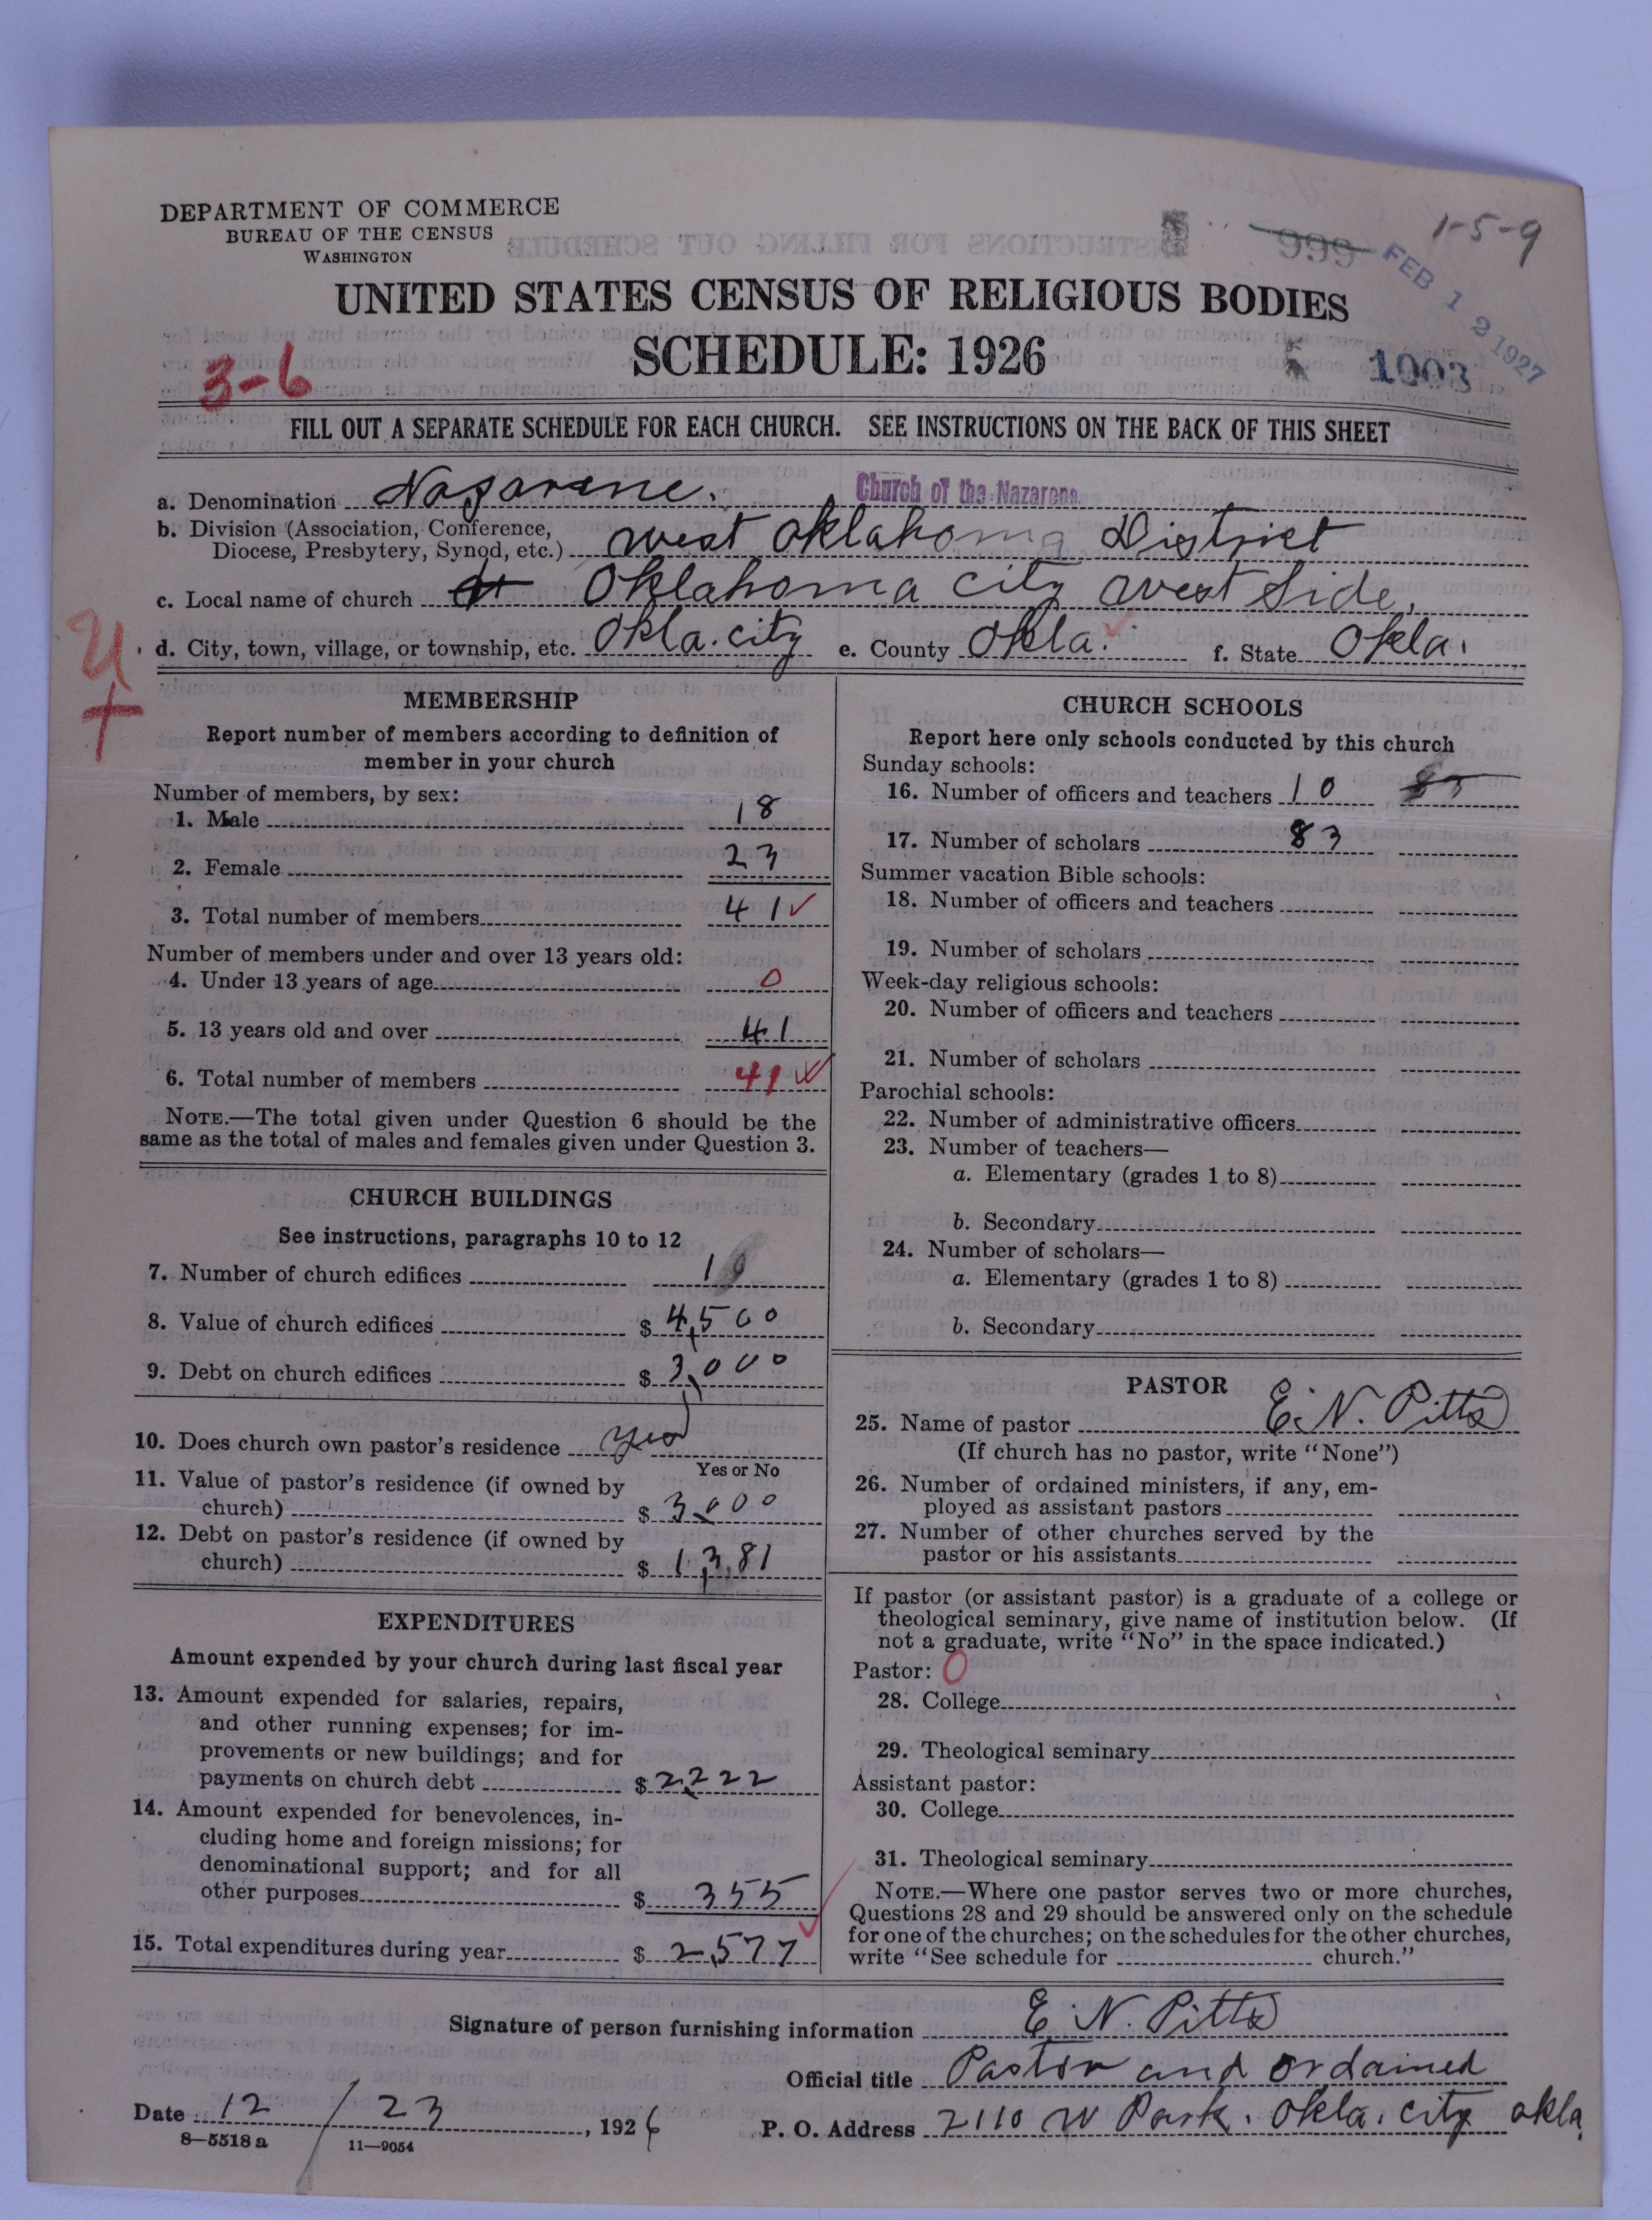 DEPARTMENT OF COMMERCE
BUREAU OF THE CENSUS
WASHINGTON
1-5-9
999
FEB 12 1927
UNITED STATES CENSUS OF RELIGIOUS BODIES
SCHEDULE: 1926
3-6
1003
FILL OUT A SEPARATE SCHEDULE FOR EACH CHURCH. SEE INSTRUCTIONS ON THE BACK OF THIS SHEET
a. Denomination Nazarene. Church of the Nazarene
b. Division (Association, Conference,
Diocese, Presbytery, Synod, etc.) west Oklahoma District
c. Local name of church Oklahoma City west Side,
d. City, town, village, or township, etc. Okla. city e. County Okla. f. State Okla.
MEMBERSHIP
Report number of members according to definition of
member in your church
Number of members, by sex:
1. Male 18
2. Female 23
3. Total number of members 41
Number of members under and over 13 years old:
4. Under 13 years of age 0
5. 13 years old and over 41
6. Total number of members 41
NOTE.—The total given under Question 6 should be the
same as the total of males and females given under Question 3.
CHURCH BUILDINGS
See instructions, paragraphs 10 to 12
7. Number of church edifices 1
8. Value of church edifices $ 4,500
9. Debt on church edifices $ 3,000
10. Does church own pastor's residence yes
Yes or No
11. Value of pastor's residence (if owned by
church) $ 3,000
12. Debt on pastor's residence (if owned by
church) $ 1,381
EXPENDITURES
Amount expended by your church during last fiscal year
13. Amount expended for salaries, repairs,
and other running expenses; for im-
provements or new buildings; and for
payments on church debt $ 2,222
14. Amount expended for benevolences, in-
cluding home and foreign missions; for
denominational support; and for all
other purposes $ 355
15. Total expenditures during year $ 2,577
CHURCH SCHOOLS
Report here only schools conducted by this church
Sunday schools:
16. Number of officers and teachers 10
17. Number of scholars 83
Summer vacation Bible schools:
18. Number of officers and teachers
19. Number of scholars
Week-day religious schools:
20. Number of officers and teachers
21. Number of scholars
Parochial schools:
22. Number of administrative officers
23. Number of teachers—
a. Elementary (grades 1 to 8)
b. Secondary
24. Number of scholars—
a. Elementary (grades 1 to 8)
b. Secondary
PASTOR
25. Name of pastor E. N. Pitts
(If church has no pastor, write "None")
26. Number of ordained ministers, if any, em-
ployed as assistant pastors
27. Number of other churches served by the
pastor or his assistants
If pastor (or assistant pastor) is a graduate of a college or
theological seminary, give name of institution below. (If
not a graduate, write "No" in the space indicated.)
Pastor: 0
28. College
29. Theological seminary
Assistant pastor:
30. College
31. Theological seminary
NOTE.—Where one pastor serves two or more churches,
Questions 28 and 29 should be answered only on the schedule
for one of the churches; on the schedules for the other churches,
write "See schedule for church."
Signature of person furnishing information E. N. Pitts
Official title Pastor and ordained
Date 12/23, 1926 P. O. Address 2110 W Park. Okla. city okla.
8—5518a 11—9054